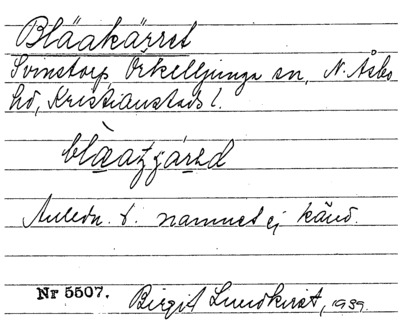 Bläakärret
Svinstorp Örkelljunga sn, N. Åsbo
hd, Kristianstads l.
Anledn. t. namnet ej känd.
Nr 5507. Birgit Lundkvist, 1939.